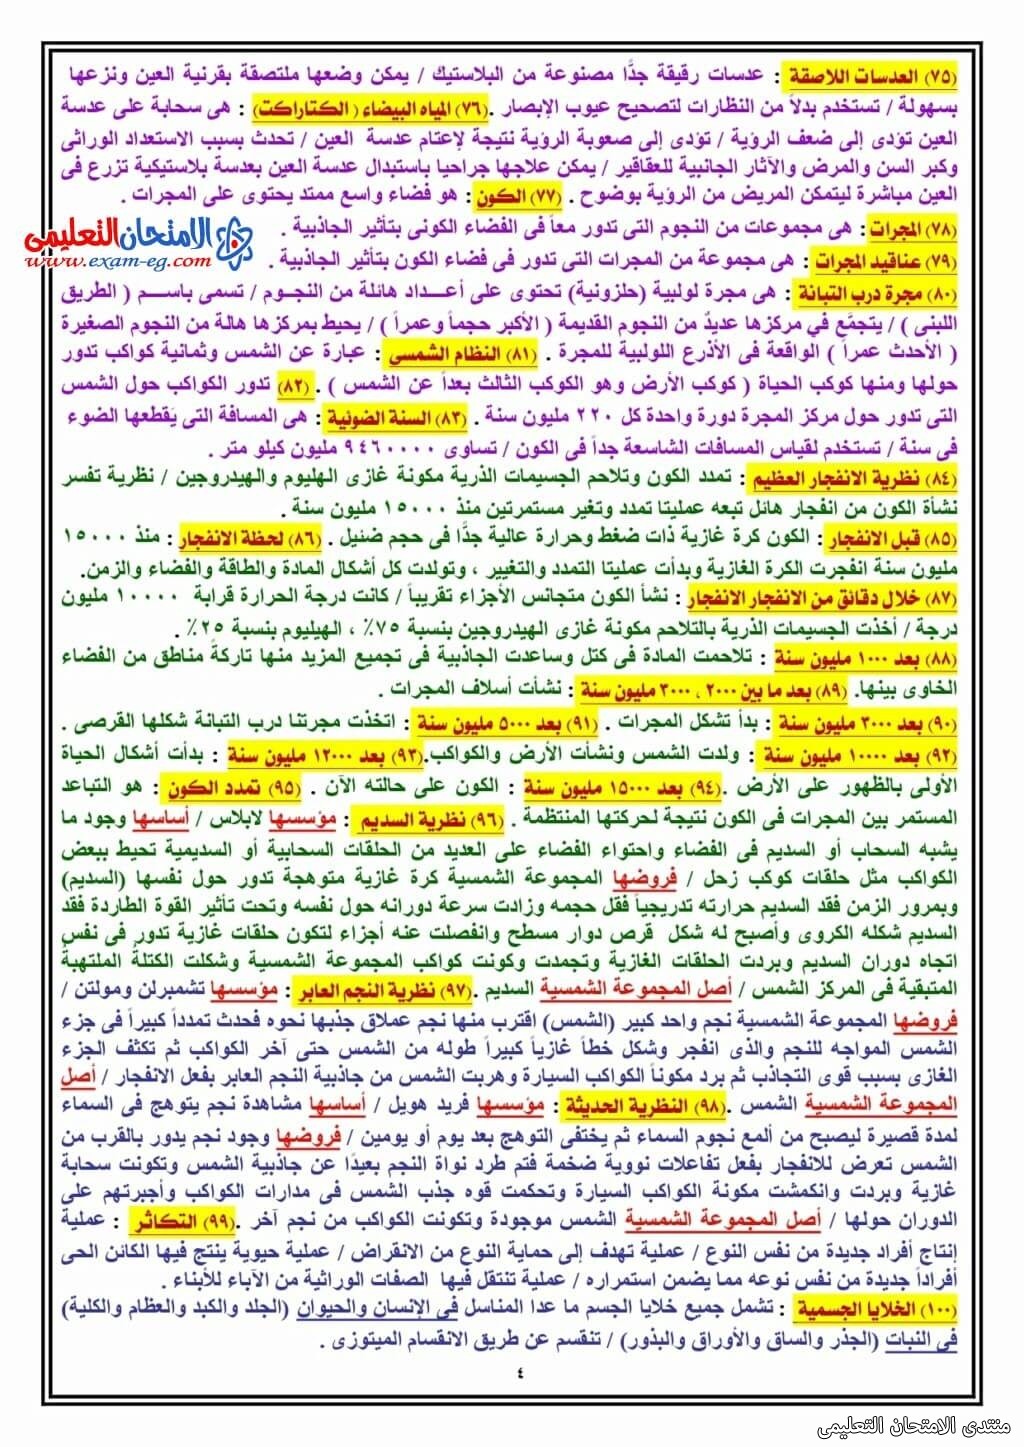 (٧٥) العدسات اللاصقة : عدسات رقيقة جدًّا مصنوعة من البلاستيك / يمكن وضعها ملتصقة بقرنية العين ونزعها
بسهولة / تستخدم بدلاً من النظارات لتصحيح عيوب الإبصار .(٧٦) المياه البيضاء ( الكتاراكت) : هى سحابة على عدسة
العين تؤدى إلى ضعف الرؤية / تؤدى إلى صعوبة الرؤية نتيجة لإعتام عدسة العين / تحدث بسبب الاستعداد الوراثى
وكبر السن والمرض والآثار الجانبية للعقاقير / يمكن علاجها جراحيا باستبدال عدسة العين بعدسة بلاستيكية تزرع فى
العين مباشرة ليتمكن المريض من الرؤية بوضوح . (٧٧) الكون : هو فضاء واسع ممتد يحتوى على المجرات .
(٧٨) المجرات : هى مجموعات من النجوم التى تدور معاً فى الفضاء الكونى بتأثير الجاذبية .
الامتحان التعليمى
(٧٩) عناقيد المجرات : هى مجموعة من المجرات التى تدور فى فضاء الكون بتأثير الجاذبية .
www.exam-eg.com
(٨٠) مجرة درب التبانة : هى مجرة لولبية (حلزونية) تحتوى على أعـــداد هائلة من النجـوم / تسمى باســـم ( الطريق
اللبنى ) / يتجمَّع في مركزها عديدٌ من النجوم القديمة ( الأكبر حجماً وعمراً ) / يحيط بمركزها هالة من النجوم الصغيرة
( الأحدث عمراً ) الواقعة فى الأذرع اللولبية للمجرة . (٨١) النظام الشمسى : عبارة عن الشمس وثمانية كواكب تدور
حولها ومنها كوكب الحياة ( كوكب الأرض وهو الكوكب الثالث بعداً عن الشمس ) .(٨٢) تدور الكواكب حول الشمس
التى تدور حول مركز المجرة دورة واحدة كل ٢٢٠ مليون سنة . (٨٣) السنة الضوئية : هى المسافة التى يَقطعها الضوء
فى سنة / تستخدم لقياس المسافات الشاسعة جداً فى الكون / تساوى ٩٤٦٠٠٠٠ مليون كيلو متر .
(٨٤) نظرية الانفجار العظيم : تمدد الكون وتلاحم الجسيمات الذرية مكونة غازى الهليوم والهيدروجين / نظرية تفسر
نشأة الكون من انفجار هائل تبعه عمليتا تمدد وتغير مستمرتين منذ ١٥٠٠٠ مليون سنة .
(٨٥) قبل الانفجار : الكون كرة غازية ذات ضغط وحرارة عالية جدًّا فى حجم ضئيل . (٨٦) لحظة الانفجار : منذ ١٥٠٠٠
مليون سنة انفجرت الكرة الغازية وبدأت عمليتا التمدد والتغيير ، وتولدت كل أشكال المادة والطاقة والفضاء والزمن.
(٨٧) خلال دقائق من الانفجار الانفجار : نشأ الكون متجانس الأجزاء تقريباً / كانت درجة الحرارة قرابة ١٠٠٠٠ مليون
درجة / أخذت الجسيمات الذرية بالتلاحم مكونة غازى الهيدروجين بنسبة ٧٥٪ ، الهيليوم بنسبة ٢٥٪ .
(٨٨) بعد ١٠٠٠ مليون سنة : تلاحمت المادة فى كتل وساعدت الجاذبية فى تجميع المزيد منها تاركةً مناطق من الفضاء
الخاوى بينها. (٨٩) بعد ما بين ٢٠٠٠ ، ٣٠٠٠ مليون سنة : نشأت أسلاف المجرات .
(٩٠) بعد ٣٠٠٠ مليون سنة : بدأ تشكل المجرات . (٩١) بعد ٥٠٠٠ مليون سنة : اتخذت مجرتنا درب التبانة شكلها القرصى .
(٩٢) بعد ١٠٠٠٠ مليون سنة : ولدت الشمس ونشأت الأرض والكواكب.(٩٣) بعد ١٢٠٠٠ مليون سنة : بدأت أشكال الحياة
الأولى بالظهور على الأرض .(٩٤) بعد ١٥٠٠٠ مليون سنة : الكون على حالته الآن . (٩٥) تمدد الكون : هو التباعد
المستمر بين المجرات فى الكون نتيجة لحركتها المنتظمة . (٩٦) نظرية السديم : مؤسسها لابلاس / أساسها وجود ما
يشبه السحاب أو السديم فى الفضاء واحتواء الفضاء على العديد من الحلقات السحابية أو السديمية تحيط ببعض
الكواكب مثل حلقات كوكب زحل / فروضها المجموعة الشمسية كرة غازية متوهجة تدور حول نفسها (السديم)
وبمرور الزمن فقد السديم حرارته تدريجياً فقل حجمه وزادت سرعة دورانه حول نفسه وتحت تأثير القوة الطاردة فقد
السديم شكله الكروى وأصبح له شكل قرص دوار مسطح وانفصلت عنه أجزاء لتكون حلقات غازية تدور فى نفس
اتجاه دوران السديم وبردت الحلقات الغازية وتجمدت وكونت كواكب المجموعة الشمسية وشكلت الكتلةُ الملتهبةُ
المتبقية فى المركز الشمس / أصل المجموعة الشمسية السديم .(٩٧) نظرية النجم العابر : مؤسسها تشمبرلن ومولتن /
فروضها المجموعة الشمسية نجم واحد كبير (الشمس) اقترب منها نجم عملاق جذبها نحوه فحدث تمدداً كبيراً فى جزء
الشمس المواجه للنجم والذى انفجر وشكل خطاً غازياً كبيراً طوله من الشمس حتى آخر الكواكب ثم تكثف الجزء
الغازى بسبب قوى التجاذب ثم برد مكوناً الكواكب السيارة وهربت الشمس من جاذبية النجم العابر بفعل الانفجار / أصل
المجموعة الشمسية الشمس .(٩٨) النظرية الحديثة : مؤسسها فريد هويل / أساسها مشاهدة نجم يتوهج فى السماء
لمدة قصيرة ليصبح من ألمع نجوم السماء ثم يختفى التوهج بعد يوم أو يومين / فروضها وجود نجم يدور بالقرب من
الشمس تعرض للانفجار بفعل تفاعلات نووية ضخمة فتم طرد نواة النجم بعيدًا عن جاذبية الشمس وتكونت سحابة
غازية وبردت وانكمشت مكونة الكواكب السيارة وتحكمت قوه جذب الشمس فى مدارات الكواكب وأجبرتهم على
الدوران حولها / أصل المجموعة الشمسية الشمس موجودة وتكونت الكواكب من نجم آخر .(٩٩) التكاثر : عملية
إنتاج أفراد جديدة من نفس النوع / عملية تهدف إلى حماية النوع من الانقراض / عملية حيوية ينتج فيها الكائن الحى
أفراداً جديدة من نفس نوعه مما يضمن استمراره / عملية تنتقل فيها الصفات الوراثية من الآباء للأبناء .
(١٠٠) الخلايا الجسمية : تشمل جميع خلايا الجسم ما عدا المناسل فى الإنسان والحيوان (الجلد والكبد والعظام والكلية)
فى النبات (الجذر والساق والأوراق والبذور) / تنقسم عن طريق الانقسام الميتوزى .
٤
منتدى الامتحان التعليمى